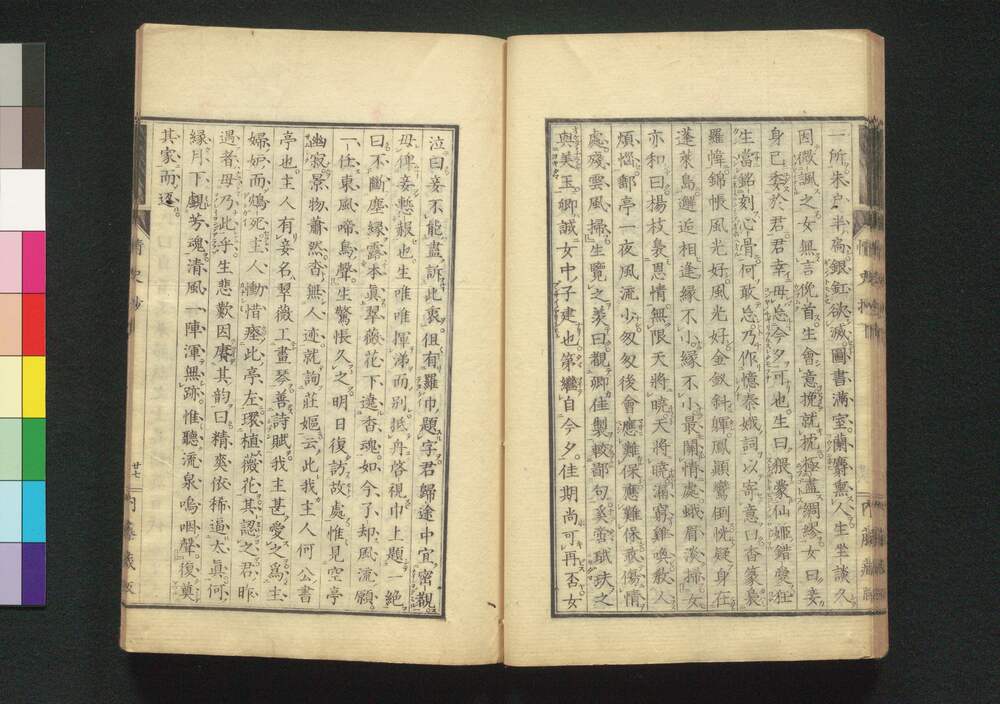 一所朱户半扃銀缸欲滅圖書滿室蘭麝熏人生坐談久
因微諷之女無言俛首生會意挽就枕極盡綢繆女曰妾
身已委於君君幸毋忘今夕可也生曰猥蒙仙姬錯愛狂
生當銘刻心骨何敢忘乃作憶秦娥詞以寄意曰杳篆裊
羅幃錦帳風光好風光好金釵斜軃鳳顛鸞倒恍疑身在
蓬萊島邂逅相逢縁不小縁不小最關情處蛾眉淡掃女
亦和曰楊枝裊恩情無限天將曉天將曉漏窮雞喚教人
煩惱郵亭一夜風流少匆匆後會應難保應難保最傷情
處殘雲風掃生覽之羨曰觀卿佳製較鄙句奚啻珷玞之
與美玉卿誠女中子建也第繼自今夕佳期尚可再否女
泣曰妾不能盡訴此衷但有羅巾題字君歸途中宜密觀
毋俾妾慙赧也生唯唯揮涕而別抵舟啓視巾上題一絶
曰不斷塵縁露本真翠薇花下遶香魂如今了却風流願
一任東風啼鳥聲生驚悵久之明日復訪故處惟見空亭
幽寂景物蕭然杳無人迹就詢莊嫗云此我主人何公書
亭也主人有妾名翠薇工畫琴善詩賦我主甚愛之爲主
婦妬而鴆死主人慟惜瘞此亭左環植薇花其認之君昨
遇者毋乃此乎生悲歎因賡其韵曰精爽依稀逼太真何
縁月下覷芳魂清風一陣渾無跡惟聽流泉嗚咽聲復奠
其家而還
情史抄
廿七
内藤藏版